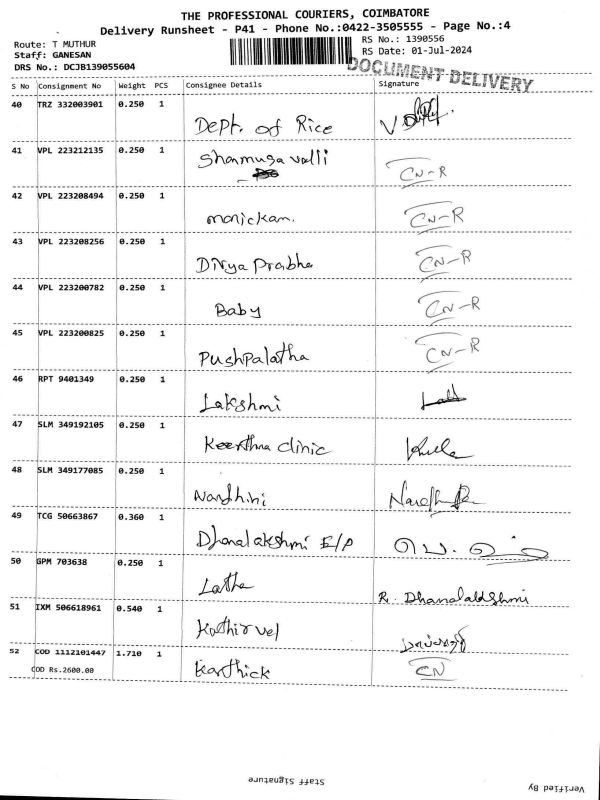 THE PROFESSIONAL COURIERS, COIMBATORE
Delivery Runsheet - P41 - Phone No.:0422-3505555 - Page No.:4
Route: T MUTHUR
RS No.: 1390556
Staff: GANESAN
RS Date: 01-Jul-2024
DRS No.: DCJB139055604
DOCUMENT DELIVERY
S No Consignment No Weight PCS Consignee Details Signature
40 TRZ 332003901 0.250 1 Dept. of Rice
41 VPL 223212135 0.250 1 Shanmuga valli CN-R
42 VPL 223208494 0.250 1 manickam. CN-R
43 VPL 223208256 0.250 1 Divya Prabha CN-R
44 VPL 223200782 0.250 1 Baby CN-R
45 VPL 223200825 0.250 1 Pushpalatha CN-R
46 RPT 9401349 0.250 1 Lakshmi
47 SLM 349192105 0.250 1 Keerthna clinic
48 SLM 349177085 0.250 1 Nandhini
49 TCG 50663867 0.360 1 Dhanalakshmi E/P
50 GPM 703638 0.250 1 Latha R. Dhanalakshmi
51 IXM 506618961 0.540 1 Kathirvel
52 COD 1112101447 1.710 1 Karthick CN
COD Rs.2600.00
Staff Signature
Verified By